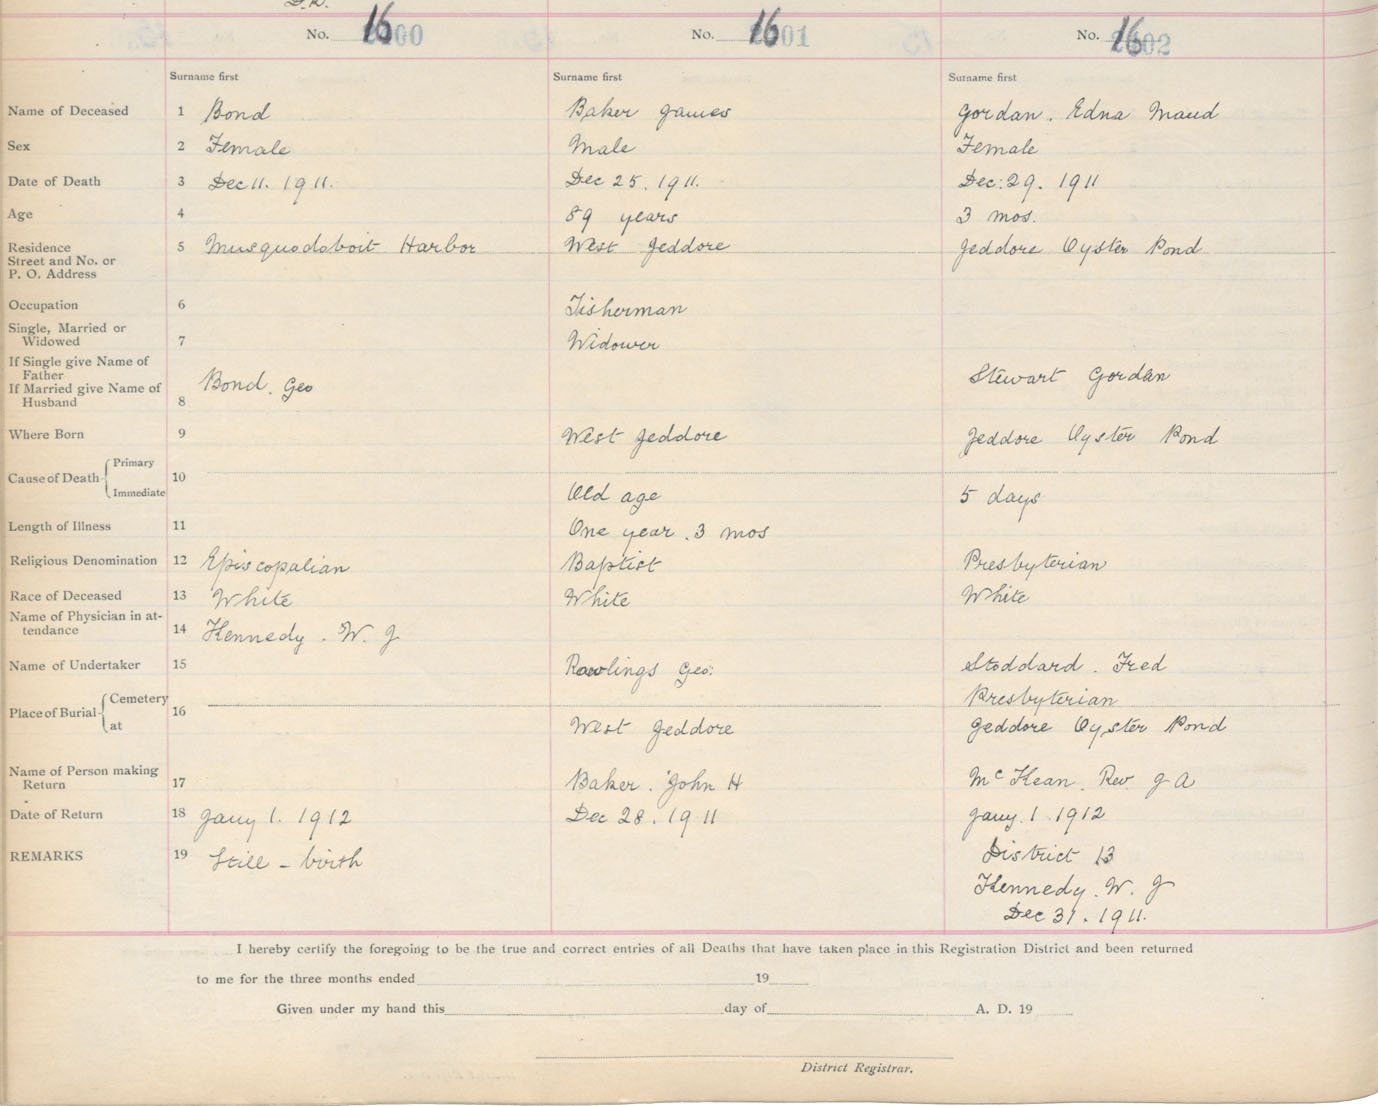 No. 1600
No. 1601
No. 1602
Surname first
Surname first
Surname first
Name of Deceased 1 Bond
Baker James
Gordan. Edna Maud
Sex 2 Female
Male
Female
Date of Death 3 Dec 11. 1911.
Dec 25. 1911.
Dec: 29. 1911
Age 4
89 years
3 mos.
Residence
Street and No. or
P. O. Address
5 Musquodoboit Harbor
West Jeddore
Jeddore Oyster Pond
Occupation 6
Fisherman
Single, Married or
Widowed 7
Widower
If Single give Name of
Father
If Married give Name of
Husband 8
Bond. Geo
Stewart Gordan
Where Born 9
West Jeddore
Jeddore Oyster Pond
Cause of Death Primary
Immediate
10
Old age
5 days
Length of Illness 11
One year. 3 mos
Religious Denomination 12 Episcopalian
Baptist
Presbyterian
Race of Deceased 13 White
White
White
Name of Physician in at-
tendance 14 Kennedy. W. J
Name of Undertaker 15
Rawlings Geo:
Stoddard. Fred
Place of Burial Cemetery
at
16
West Jeddore
Presbyterian
Jeddore Oyster Pond
Name of Person making
Return 17
Baker. John H
McKean. Rev. J A
Date of Return 18 Jany 1. 1912
Dec 28. 1911
Jany. 1. 1912
REMARKS 19 Still - birth
District 13
Kennedy. W. J
Dec 31. 1911.
I hereby certify the foregoing to be the true and correct entries of all Deaths that have taken place in this Registration District and been returned
to me for the three months ended 19
Given under my hand this day of A. D. 19
District Registrar.